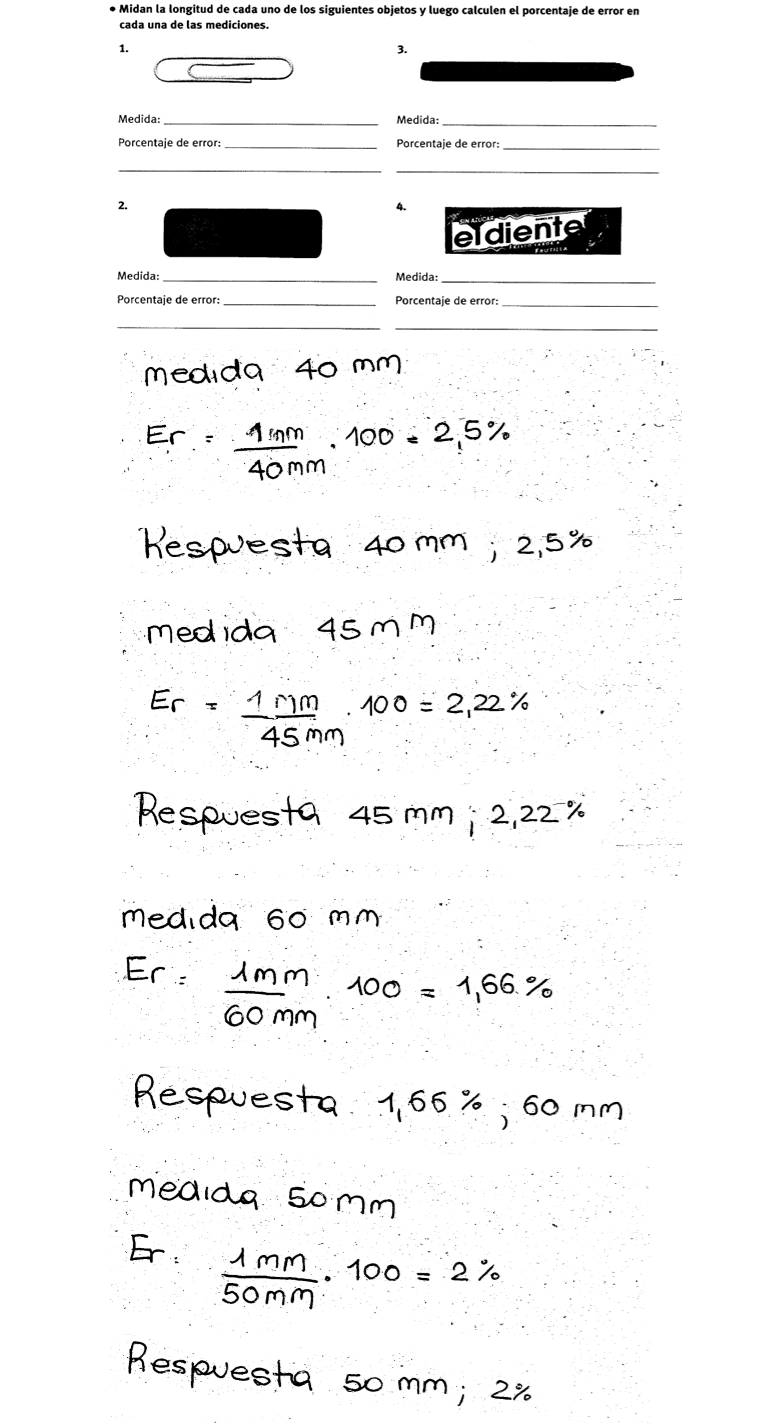 • Midan la longitud de cada uno de los siguientes objetos y luego calculen el porcentaje de error en
cada una de las mediciones.
1.
Medida:
Porcentaje de error:
2.
Medida:
Porcentaje de error:
3.
Medida:
Porcentaje de error:
4.
SIN AZÚCAR
el diente
FRUTILLA
Medida:
Porcentaje de error:
medida 40 mm
Er = 1 mm / 40 mm . 100 = 2,5%
Respuesta 40 mm ; 2,5%
medida 45 mm
Er = 1 mm / 45 mm . 100 = 2,22%
Respuesta 45 mm ; 2,22%
medida 60 mm
Er = 1 mm / 60 mm . 100 = 1,66%
Respuesta 1,66% ; 60 mm
medida 50 mm
Er = 1 mm / 50 mm . 100 = 2%
Respuesta 50 mm ; 2%